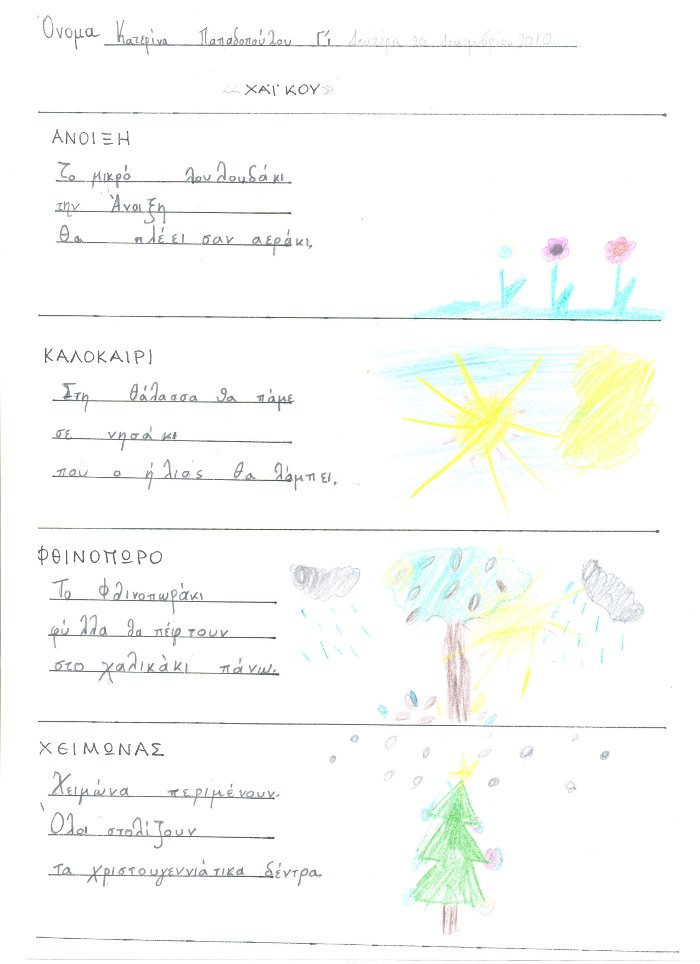 Όνομα Κατερίνα Παπαδοπούλου Γ'1 Δευτέρα 20 Δεκεμβρίου 2010
«ΧΑΪΚΟΥ»
ΑΝΟΙΞΗ
Το μικρό λουλουδάκι
την Άνοιξη
θα πλέει σαν αεράκι.
ΚΑΛΟΚΑΙΡΙ
Στη θάλασσα θα πάμε
σε νησάκι
που ο ήλιός θα λάμπει.
ΦΘΙΝΟΠΩΡΟ
Το Φλινοπωράκι
φύλλα θα πέφτουν
στο χαλικάκι πάνω.
ΧΕΙΜΩΝΑΣ
Χειμώνα περιμένουν.
Όλοι στολίζουν
τα χριστουγεννιάτικα δέντρα.